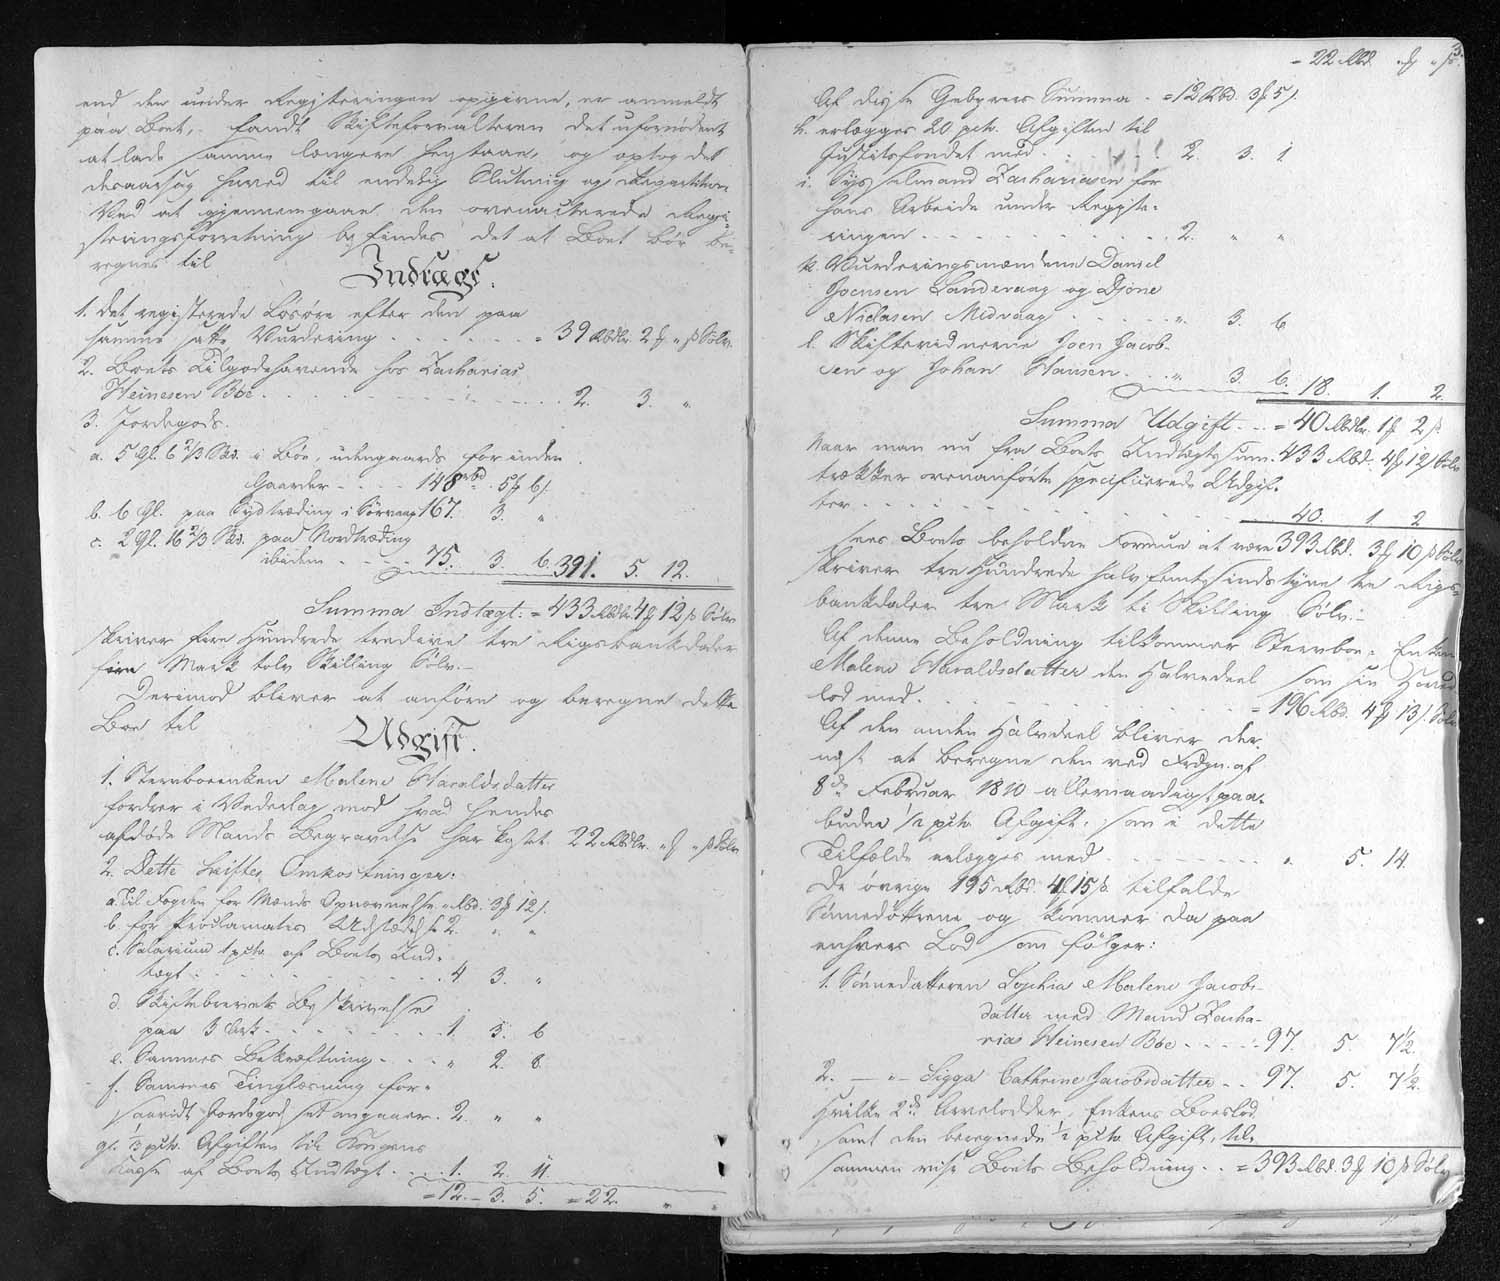 end den under Registeringen opgivne, er anmeldt
paa Boet, fandt Skifteforvalteren det ufornødent
at lade samme længere henstaae, og optog det
desaarsag herved til endelig Slutning og Repartition.
Ved at gjennemgaae den ovenacterede Regi-
steringsforretning befindes det at Boet bør be-
regnes til
Indtægt.
1. Det registerede Løsøre efter den paa
samme satte Vurdering - - - - - = 39 Rbdlr. 2 ℳ „ ß Sølv.
2. Boets Tilgodehavende hos Zacharias
Heinesen Bøe - - - - - - 2. 3. „
3. Jordegods.
a. 5 Gl. 6 2/3 Skd. i Bøe, udengaards forinden
Gaarder - - - - 148 rbd. 5 ℳ 6 ß.
b. 6 Gl. paa Sydtræding i Sørvaag 167. 3. „
c. 2 Gl. 16 2/3 Skd. paa Nordtræding
ibidem - - - - 75. 3. 6. 391. 5. 12.
Summa Indtægt: = 433 Rbdlr. 4 ℳ 12 ß Sølv
skriver fire Hundrede tredive tre Rigsbankdaler
fire Mark tolv Skilling Sølv.-
Derimod bliver at anføre og beregne dette
Boe til
Udgift.
1. Stervboeenken Malene Haraldsdatter
fordrer i Vederlag mod hvad hendes
afdøde Mands Begravelse har kostet 22 Rbdlr. „ ℳ „ ß Sølv
2. Dette Skiftes Omkostninger:
a. Til Fogden for Mænds Opnævnelse „ Rbd. 3 ℳ 12 ß.
b. for Proclamatis Udstædelse 2. „ „
c. Salarium 1 pCto. af Boets Ind-
tægt - - - - - - - 4 3. „
d. Skiftebrevets Beskrivelse
paa 3 Ark - - - - - - 1. 3. 6
e. Sammes Bekræftning - - - „ 2. 8.
f. Sammes Tinglæsning for-
saavidt Jordegodset angaaer. 2. „ „
g. 1/3 pCto. Afgiften til Kongens
Kasse af Boets Indtægt - - - 1. 2. 11.
= 12. - 3. 5. = 22. „ „
3.
= 22 Rbd. „ ℳ „ ß.
Af disse Gebyrers Summa - = 12 Rbd. 3 ℳ 5 ß.
h. erlægges 20 pCto. Afgiften til
Justitsfondet med - - - - 2. 3. 1.
i. Sysselmand Zachariasen for
hans Arbeide under Registe-
ringen - - - - - - - - 2. „ „
k. Vurderingsmændene Daniel
Joensen Sandevaag og Djone
Niclasen Midvaag - - - - - „ 3. 6
l. Skiftevidnerne Joen Jacob-
sen og Johan Hansen - - - „ 3. 6. 18. 1. 2.
Summa Udgift - - = 40 Rbdlr. 1 ℳ 2 ß.
Naar man nu fra Boets Indtægts sum. 433 Rbd. 4 ℳ 12 ß Sølv
trækker ovenanførte specificerede Udgif-
ter - - - - - - - - - - 40. 1. 2
sees Boets beholdne Formue at være 393 Rbd. 3 ℳ 10 ß Sølv
skriver tre Hundrede halvfemtsindstyve tre Rigs-
bankdaler tre Mark ti Skilling Sølv.-
Af denne Beholdning tilkommer Stervboe-Enken
Malene Haraldsdatter den Halvedeel som sin Hoved-
lod med - - - - - - - - - = 196 Rbd. 4 ℳ 13 ß. Sølv
Af den anden Halvdeel bliver der-
næst at beregne den ved Frdgn. af
8de Februar 1810 allernaadigst paa-
budne 1/2 pCto. Afgift, som i dette
Tilfælde erlægges med - - - - - „ 5. 14.
De øvrige 195 Rbd. 4 ℳ 15 ß. tilfalde
Sønnedøttrene og kommer da paa
enhvers Lod som følger:
1. Sønnedatteren Sophia Malene Jacobs-
datter med Mand Zacha-
rias Heinesen Bøe - - - - 97. 5. 7 1/2.
2. — „ — Sigga Cathrine Jacobsdatter - - 97. 5. 7 1/2.
Hvilke 2de Arvelodder, Enkens Boeslod
samt den beregnede 1/2 pCto. Afgift, til-
sammen viser Boets Beholdning - - = 393 Rbd. 3 ℳ 10 ß Sølv